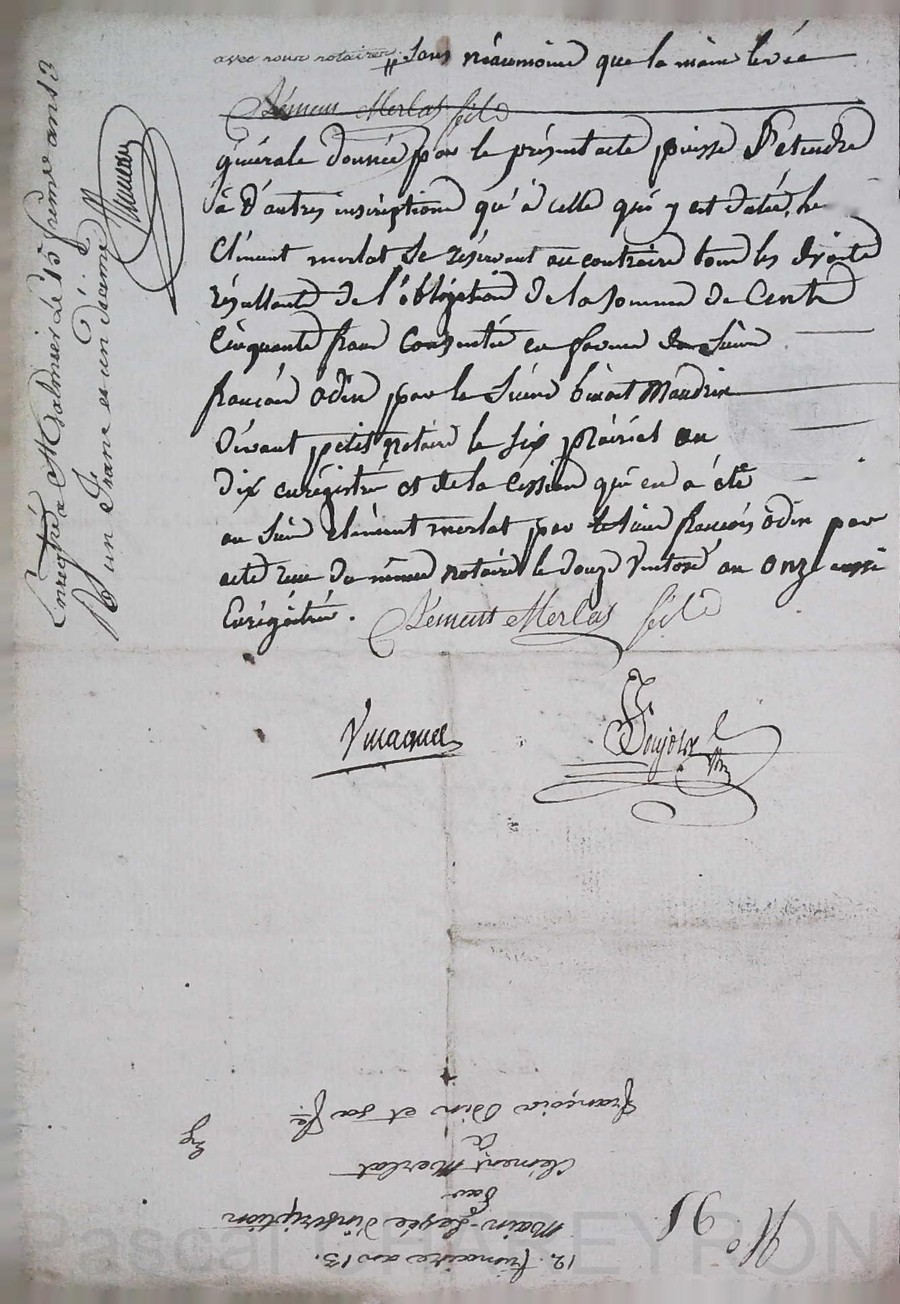 avec nous notaires. // Sans néaumoins que la main levée
Clément Merlat fils
générale donnée par le présent acte puisse s'étendre
à d'autres inscriptions qu'à celle qui y est datée, le
Clément merlat se réservant au contraire tous les droits
résultants de l'obligation de la somme de Cent
Cinquante francs Consentie en faveur du Sieur
françois odin par le Sieur benoit Maudrin
Vivant petit notaire le six prairial an
dix enregistré et de la Cession qui en a été
au Sieur Clément merlat par le sieur françois odin par
acte reçu du même notaire le douze Ventose an onze aussi
Enrégistré. Clément Merlat fils
Enregistré à St Galmier le 15 frimre an 13
R un franc et un décime
12. frimaire an 13.
Main-Levée d'inscription
Par
Clément Merlat
à
François Odin et sa fe
No 91
Pascal CHAZEYRON